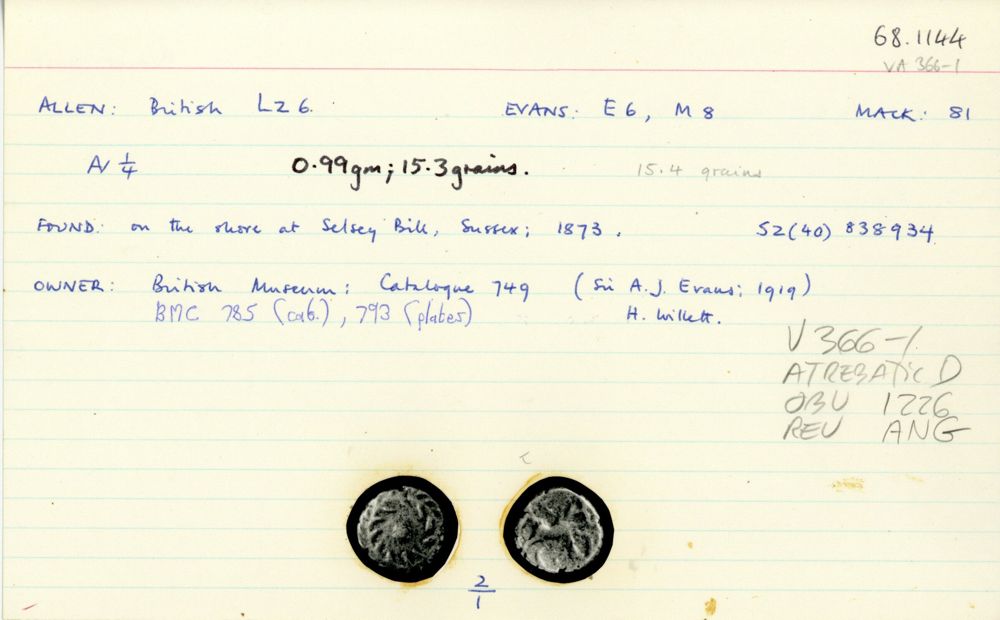 68.1144
VA 366-1
ALLEN: British LZ 6. EVANS: E 6, M 8 MACK: 81
AV 1/4 0.99gm; 15.3grains. 15.4 grains
FOUND: on the shore at Selsey Bill, Sussex; 1873. SZ(40) 838934
OWNER: British Museum: Catalogue 749 (Sir A.J. Evans; 1919)
BMC 785 (cat.), 793 (plates) H. Willett.
V366-1
ATREBATIC D
OBV 1226
REV ANG
2/1